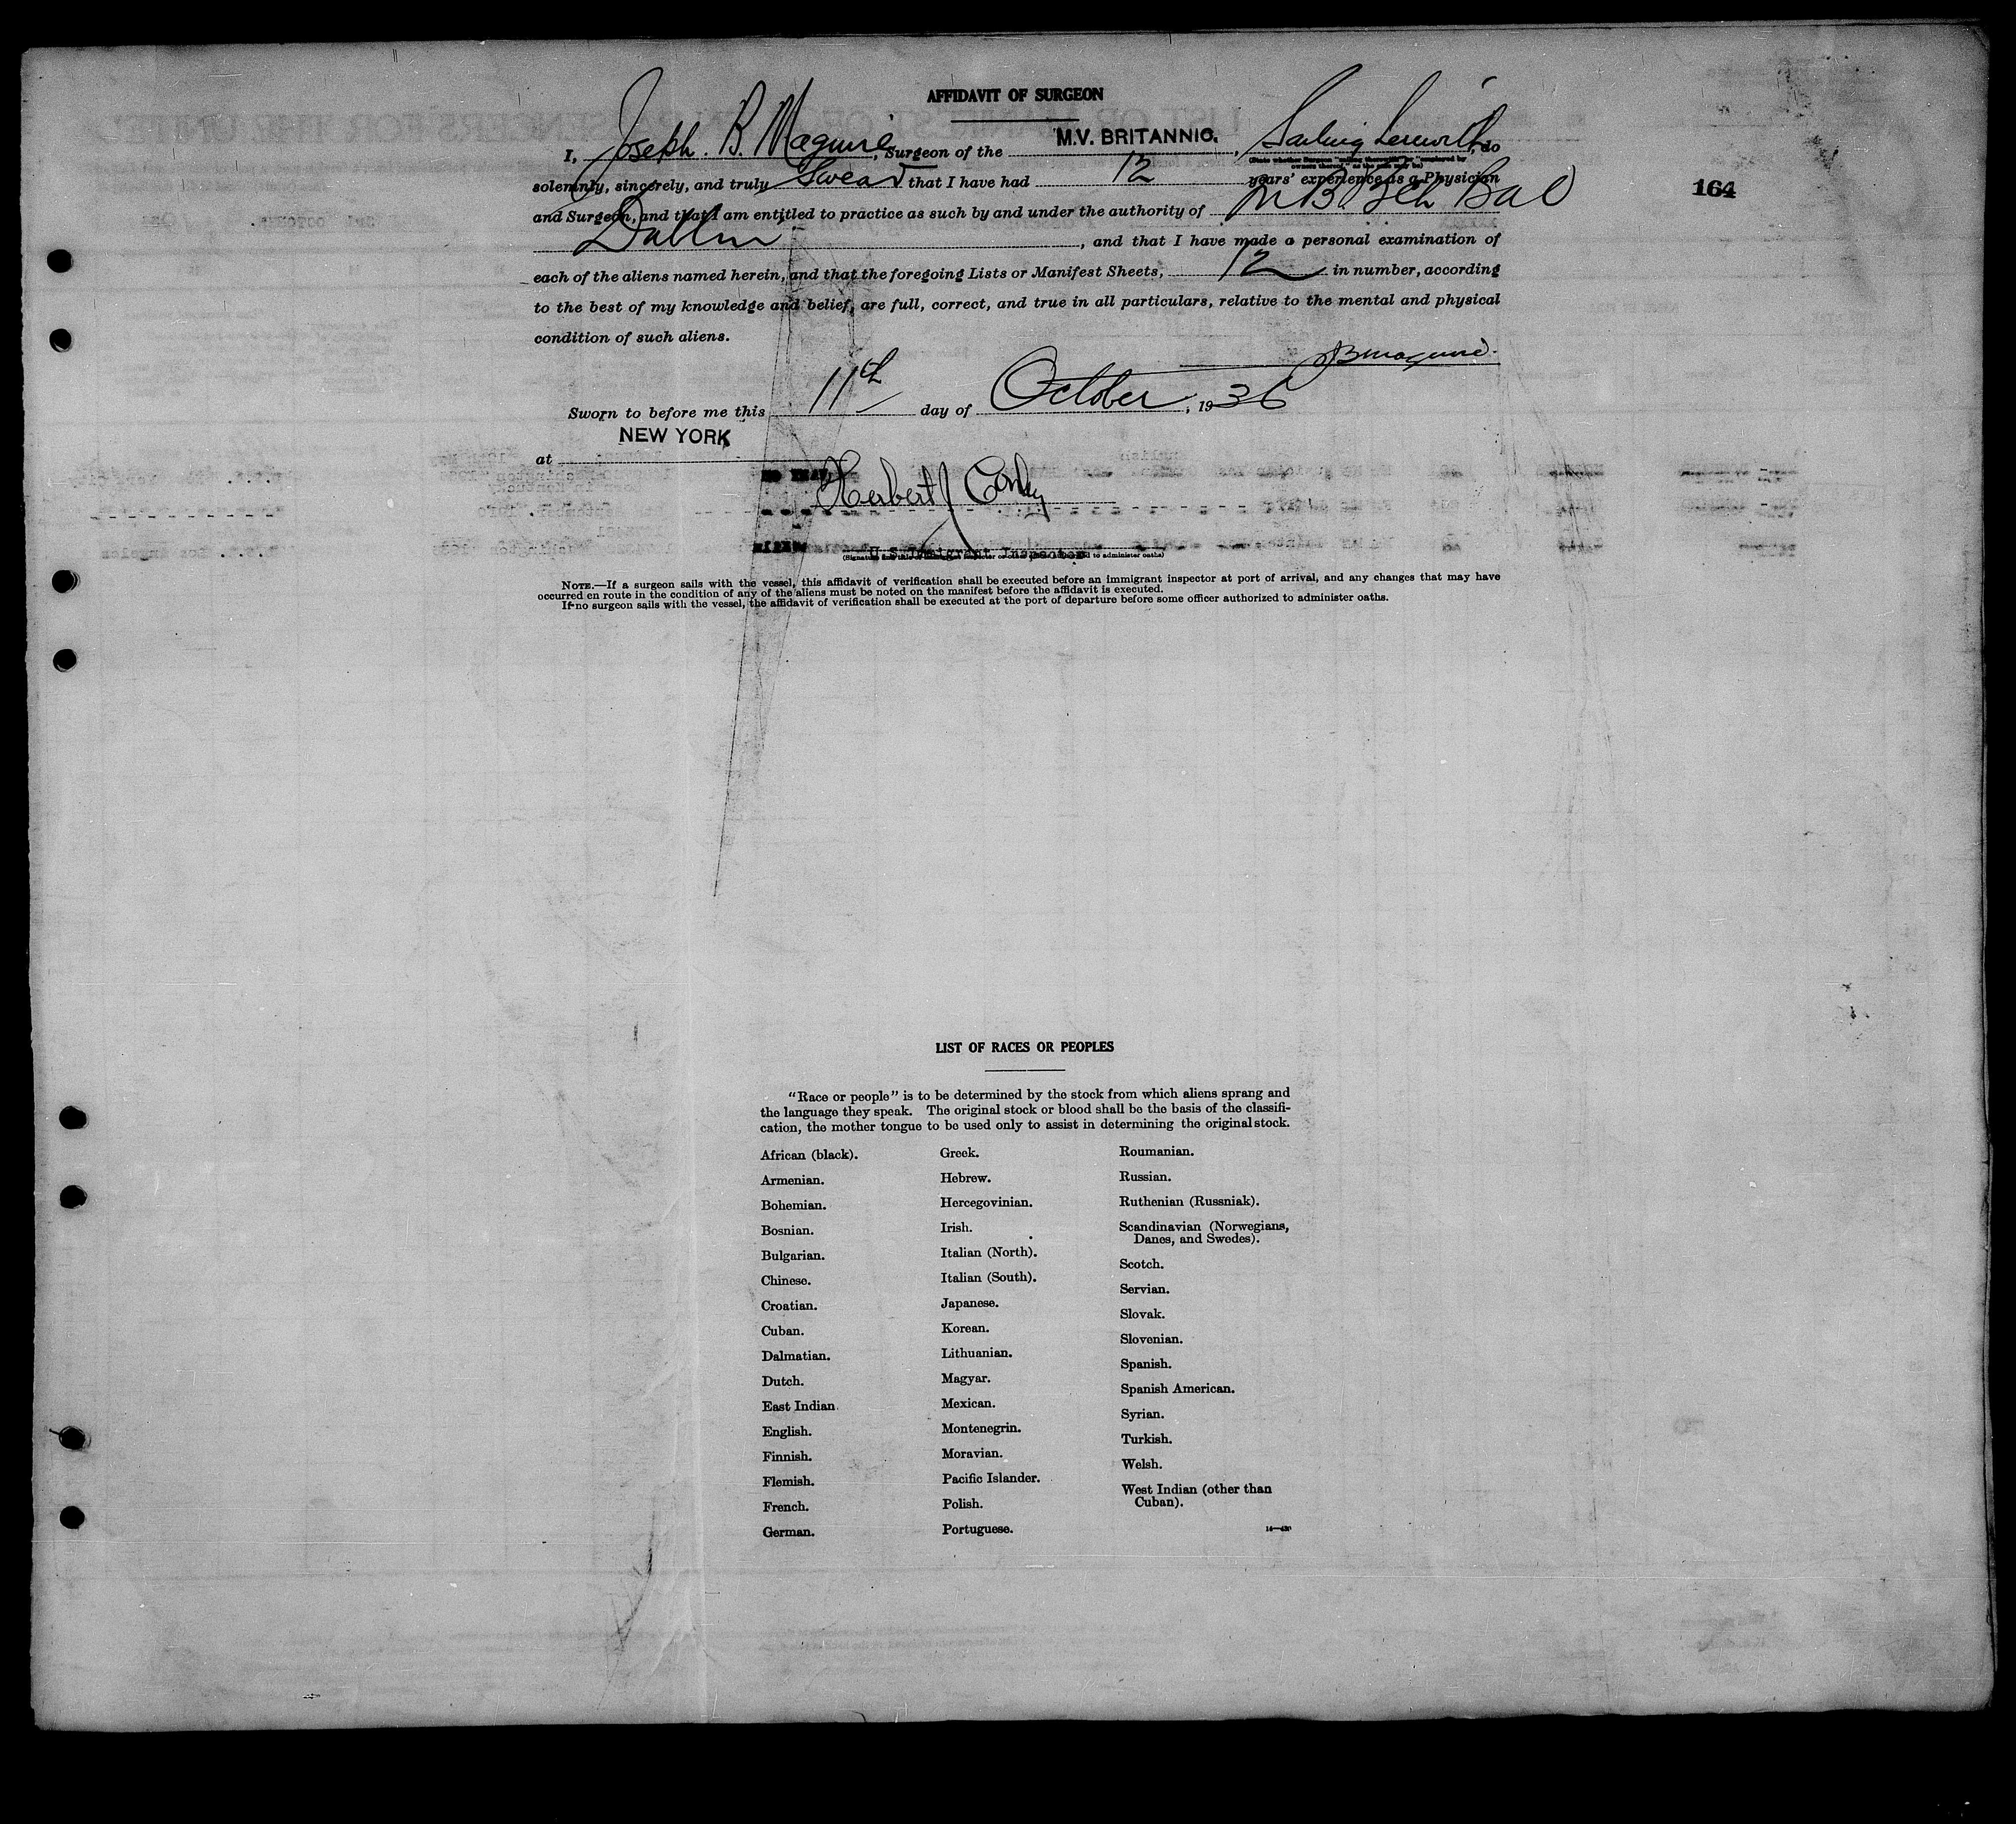 AFFIDAVIT OF SURGEON
I, Joseph. B. Maguire, Surgeon of the M.V. BRITANNIC., Sailing therewith, do
(State whether Surgeon "sailing therewith" or "employed by
owners thereof," as the case may be)
solemnly, sincerely, and truly Swear that I have had 12 years' experience as a Physician
164
and Surgeon, and that I am entitled to practice as such by and under the authority of
Dublin, and that I have made a personal examination of
each of the aliens named herein, and that the foregoing Lists or Manifest Sheets, 12 in number, according
to the best of my knowledge and belief, are full, correct, and true in all particulars, relative to the mental and physical
condition of such aliens.
JBMaguire.
Sworn to before me this 11th day of October, 1936
at NEW YORK
Herbert J
U.S. Immigrant Inspector
NOTE.—If a surgeon sails with the vessel, this affidavit of verification shall be executed before an immigrant inspector at port of arrival, and any changes that may have
occurred en route in the condition of any of the aliens must be noted on the manifest before the affidavit is executed.
If no surgeon sails with the vessel, the affidavit of verification shall be executed at the port of departure before some officer authorized to administer oaths.
LIST OF RACES OR PEOPLES
"Race or people" is to be determined by the stock from which aliens sprang and
the language they speak. The original stock or blood shall be the basis of the classifi-
cation, the mother tongue to be used only to assist in determining the original stock.
African (black).
Armenian.
Bohemian.
Bosnian.
Bulgarian.
Chinese.
Croatian.
Cuban.
Dalmatian.
Dutch.
East Indian.
English.
Finnish.
Flemish.
French.
German.
Greek.
Hebrew.
Hercegovinian.
Irish.
Italian (North).
Italian (South).
Japanese.
Korean.
Lithuanian.
Magyar.
Mexican.
Montenegrin.
Moravian.
Pacific Islander.
Polish.
Portuguese.
Roumanian.
Russian.
Ruthenian (Russniak).
Scandinavian (Norwegians,
Danes, and Swedes).
Scotch.
Servian.
Slovak.
Slovenian.
Spanish.
Spanish American.
Syrian.
Turkish.
Welsh.
West Indian (other than
Cuban).